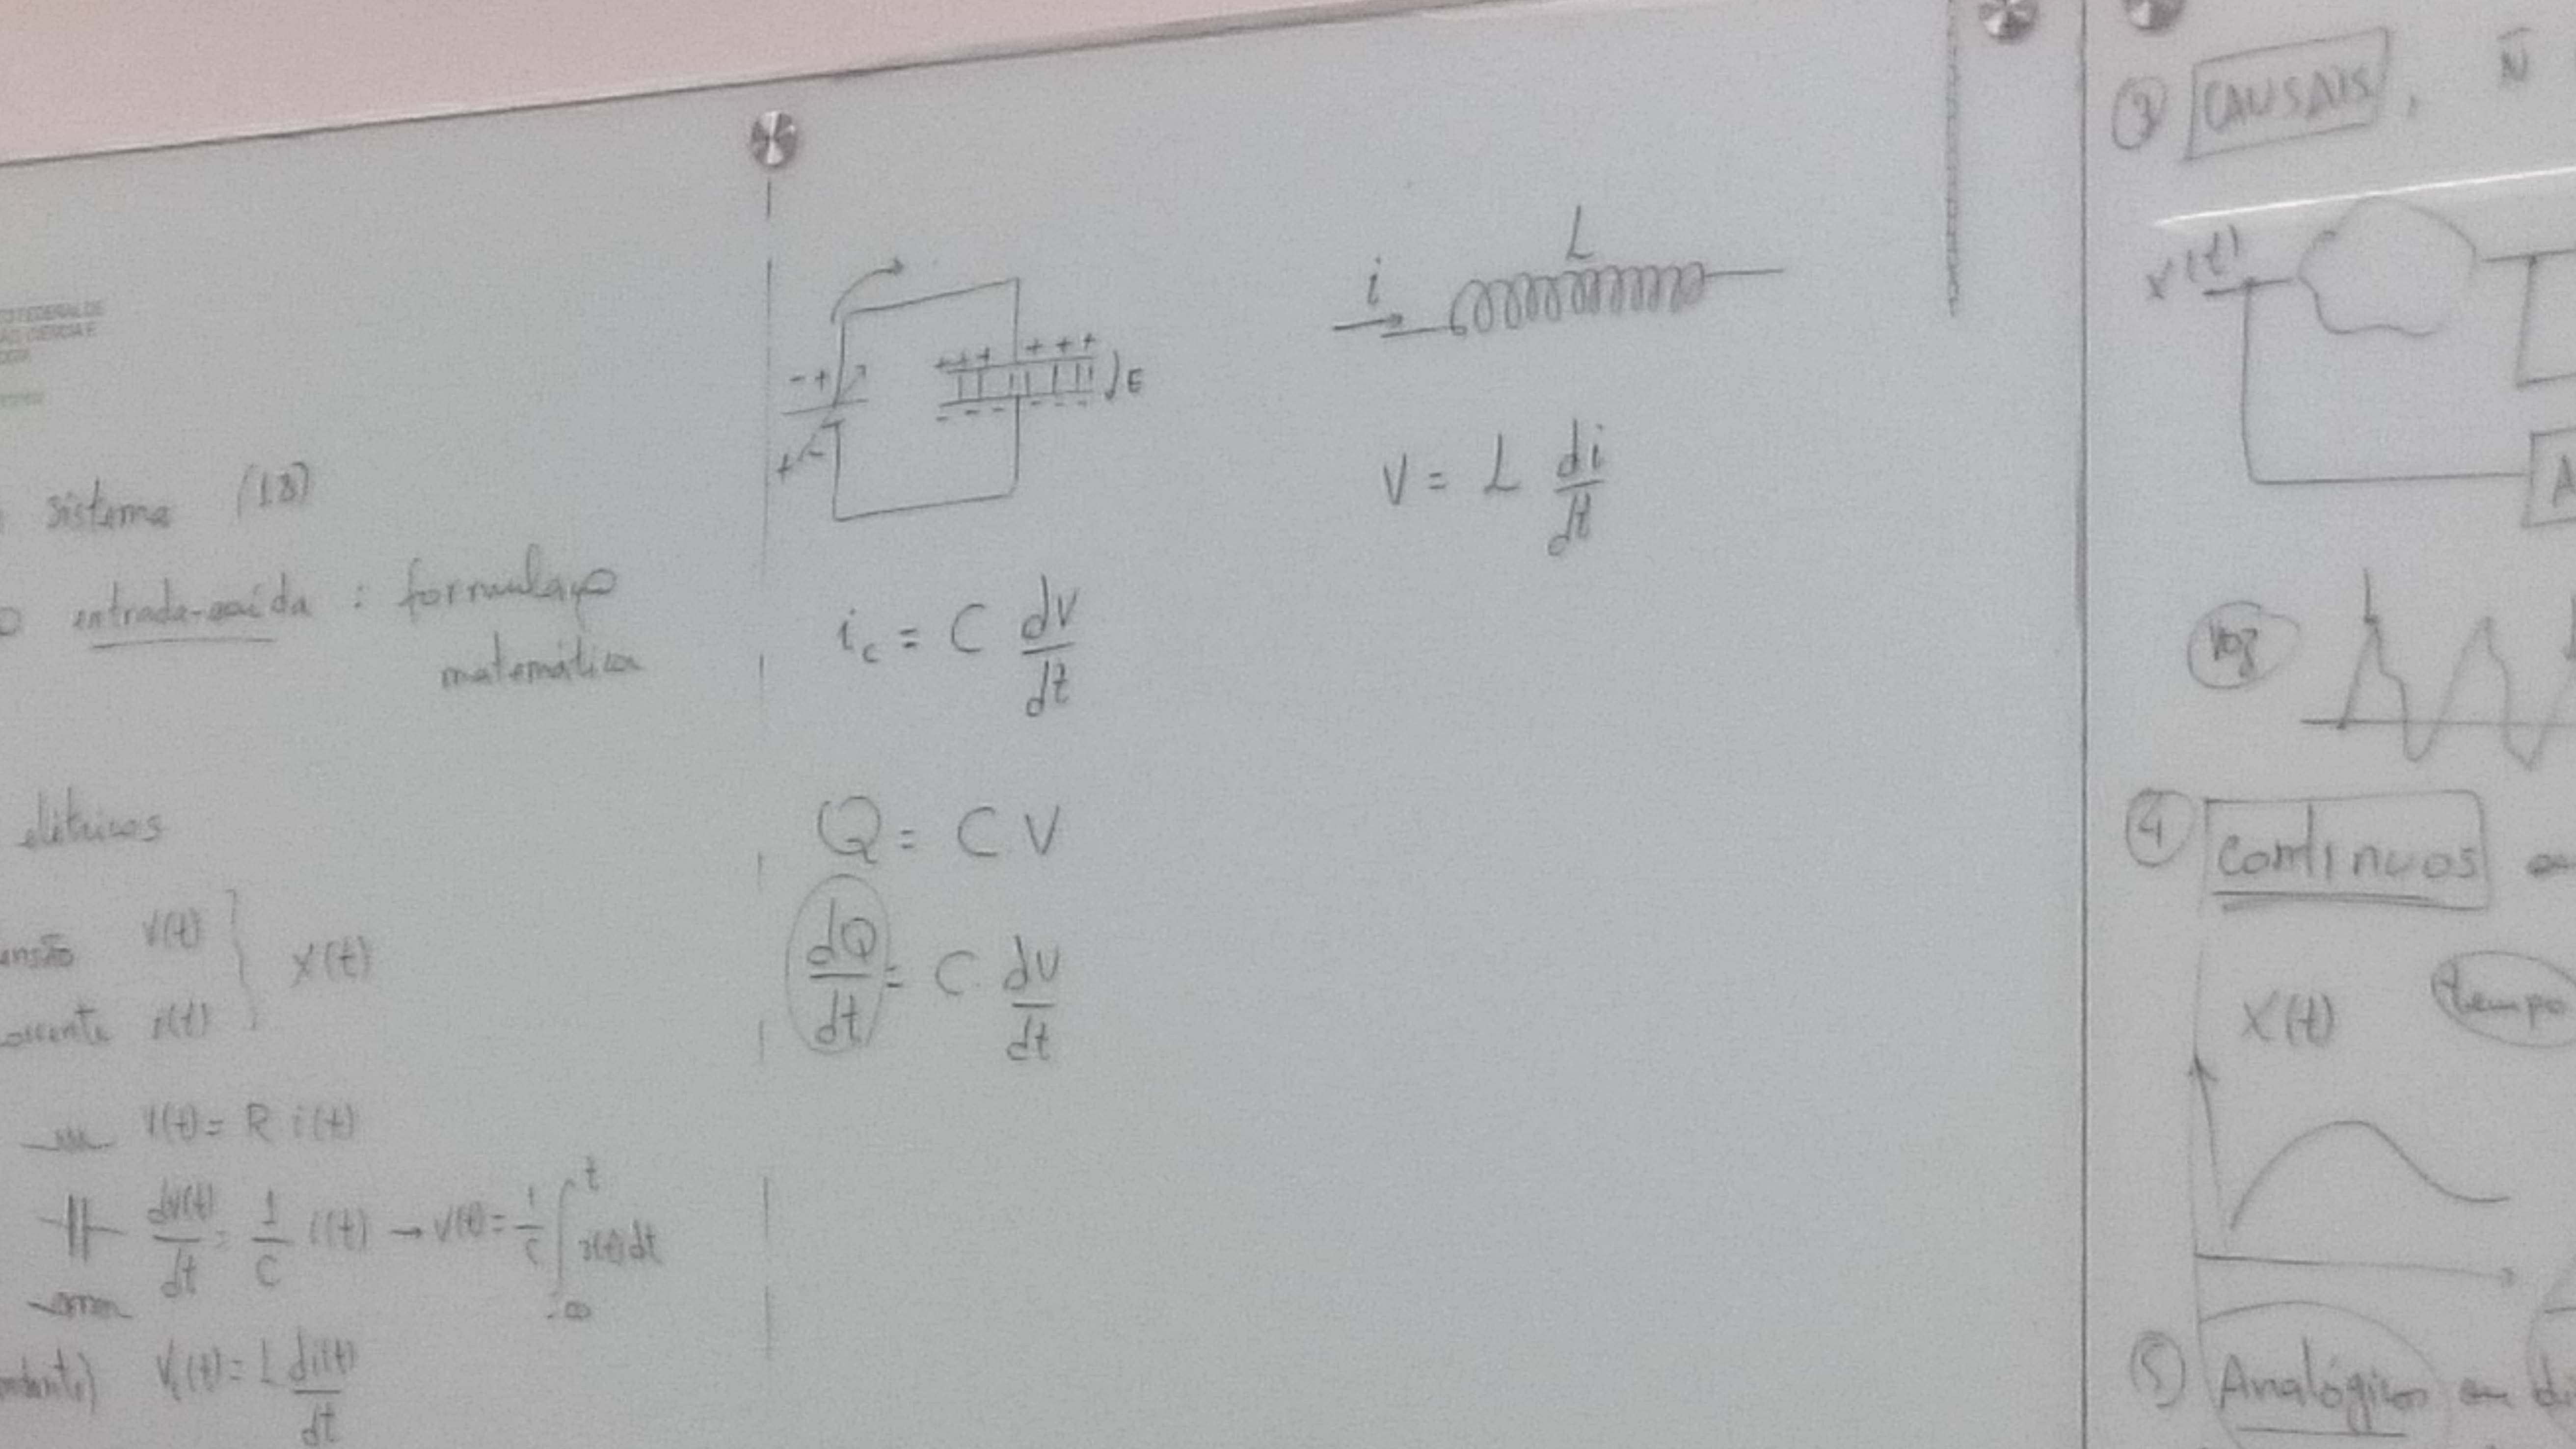 sistema (1.8)
entrada-saída : formulação
matemática
elétricos
v(t)
x(t)
i(t)
v(t) = R i(t)
dv(t)/dt = 1/C i(t) → v(t) = 1/C ∫_{-∞}^{t} i(t) dt
V_L(t) = L di(t)/dt
- +
+ + + + + +
- - - - - -
E
+ -
i_c = C dv/dt
Q = C V
dQ/dt = C dv/dt
L
i
V = L di/dt
③ CAUSAIS, Ñ
x(t)
A
Voz
④ CONTINUOS
X(t) tempo
⑤ Analógicos ou di